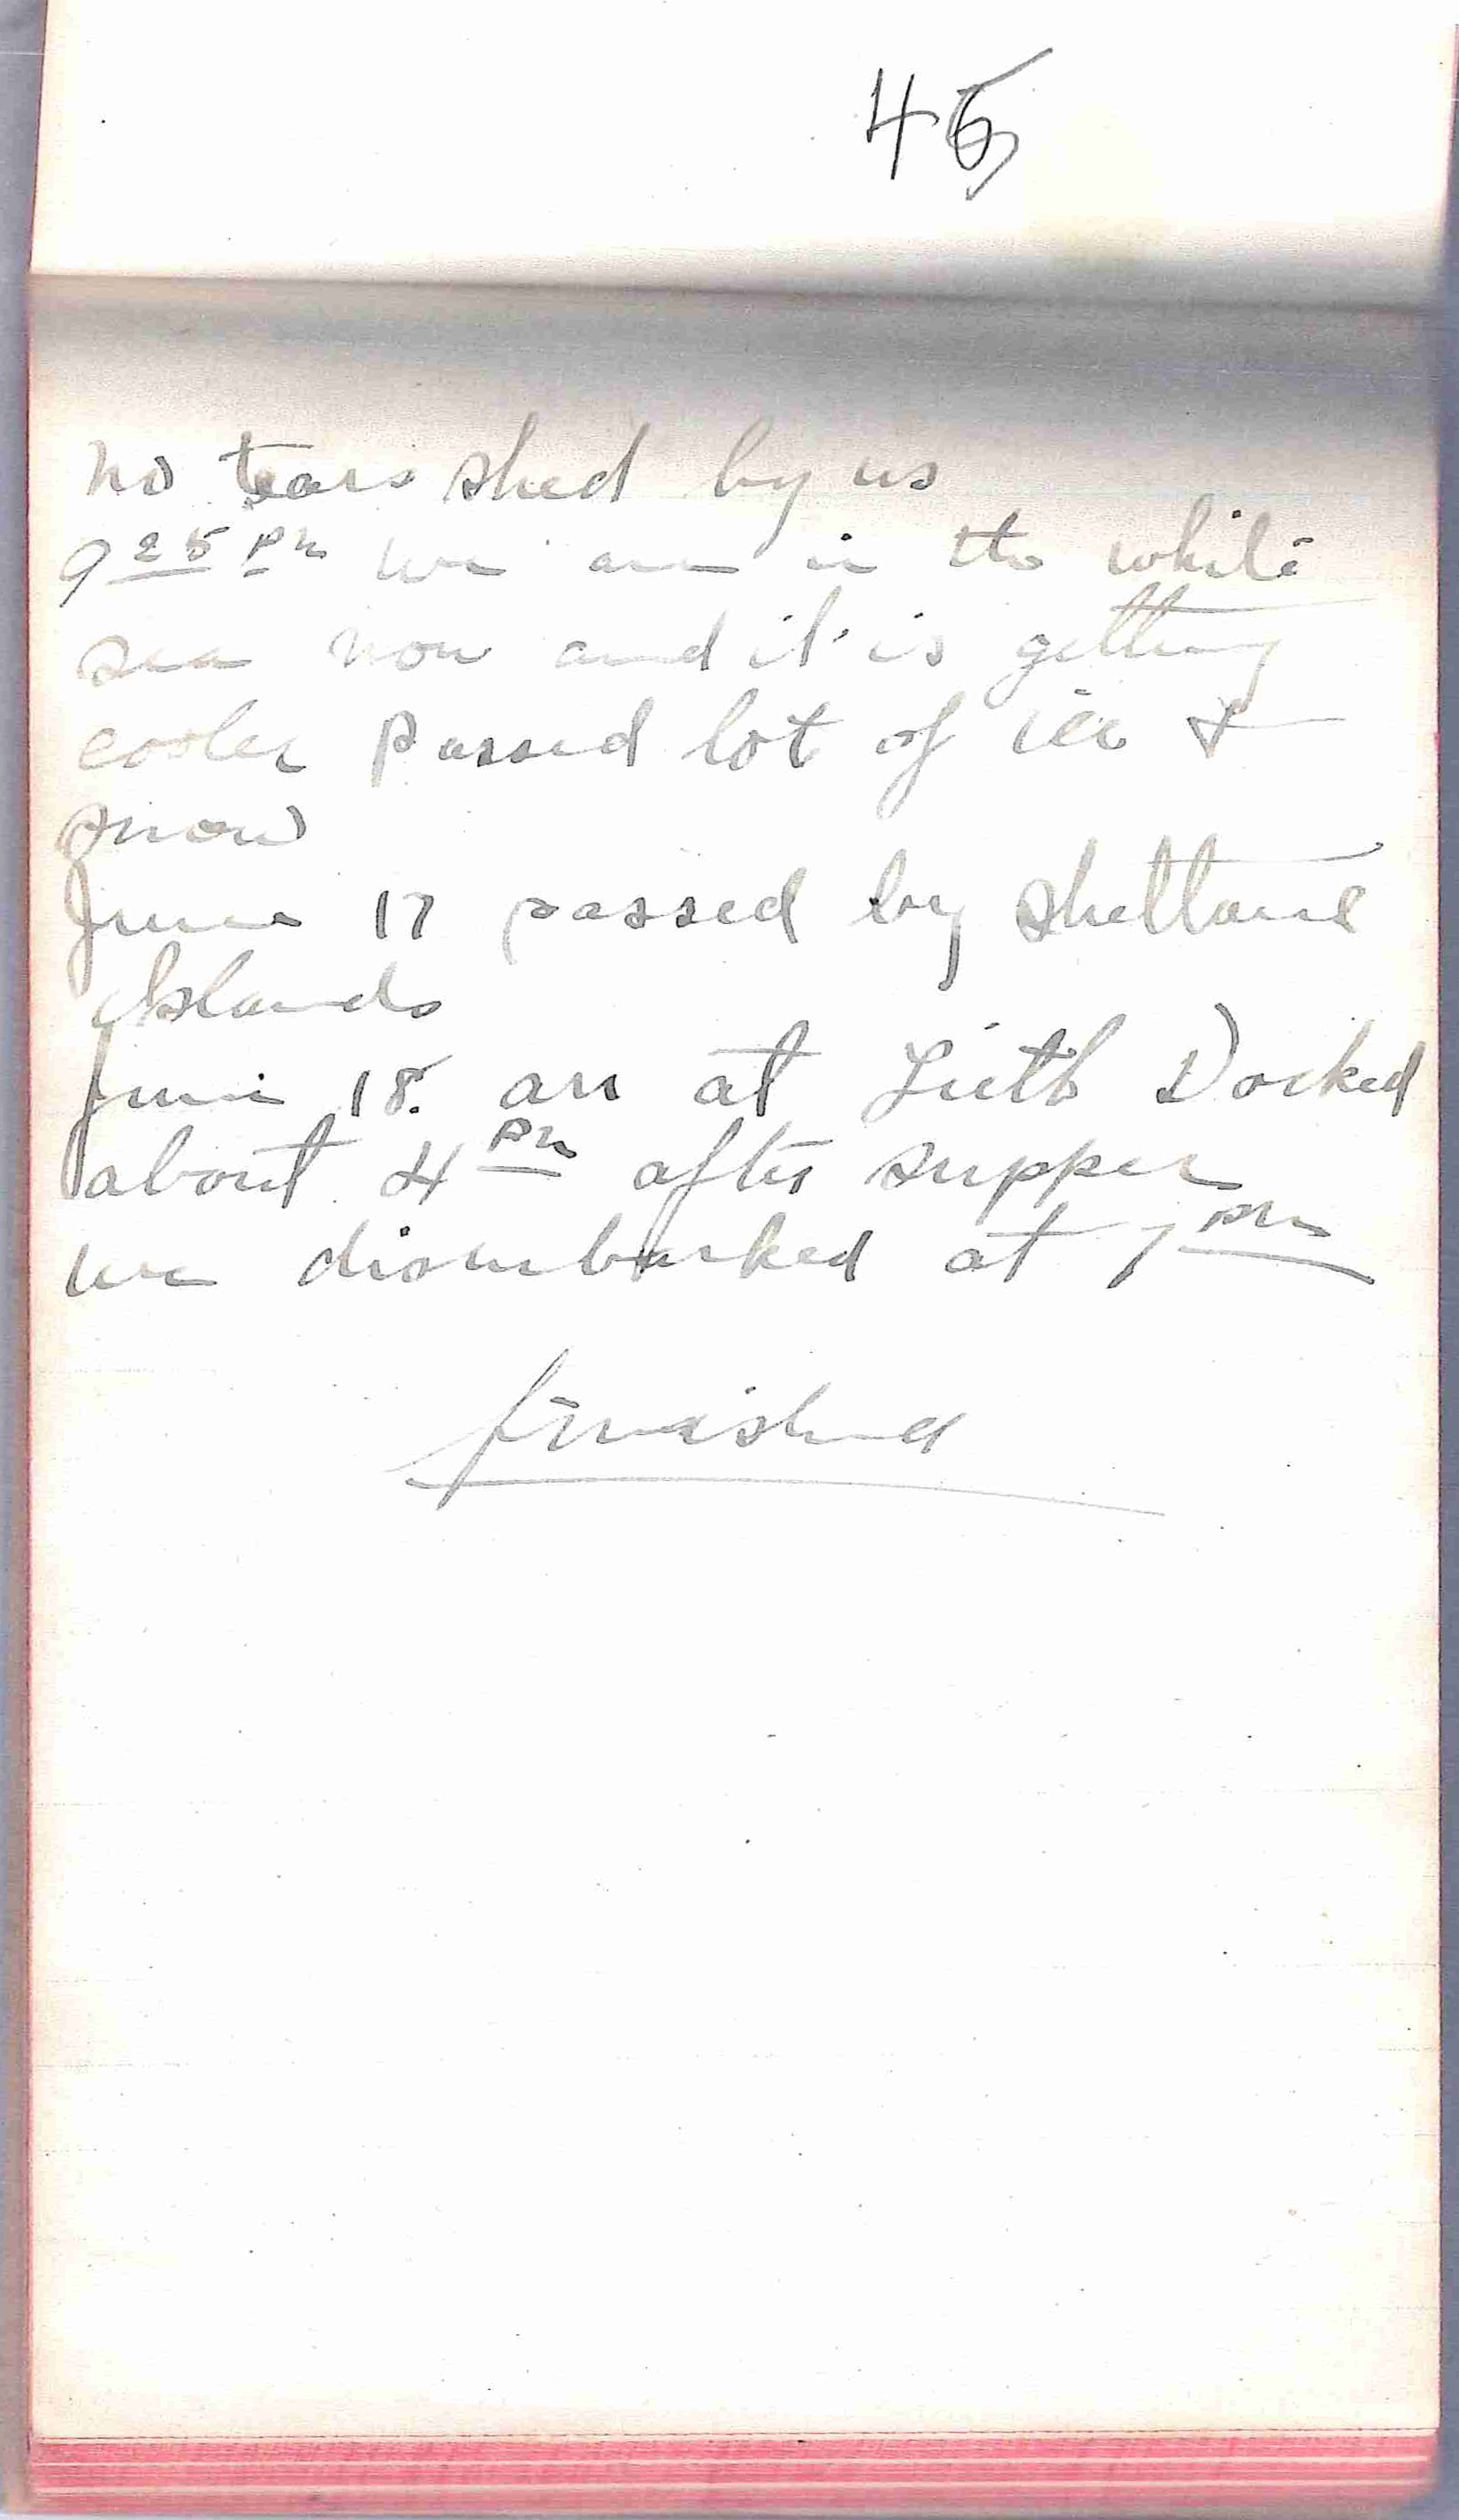 no tears shed by us
9 25 pm we are in the white
sea now and it is getting
cooler passed lot of ice &
snow
June 17 passed by Shetland
Islands
June 18. arr at Lieth Docked
about 4 pm after supper
we disembarked at 7 pm
finished